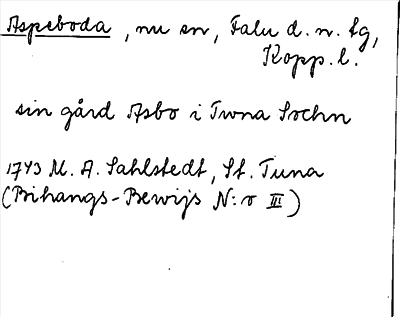 Aspeboda, nu sn, Falu d. n. lg,
Kopp. l.
sin gård Asbo i Twna Sochn
1743 M. A. Sahlstedt, St. Tuna
(Bihangs-Bewijs N:o III)